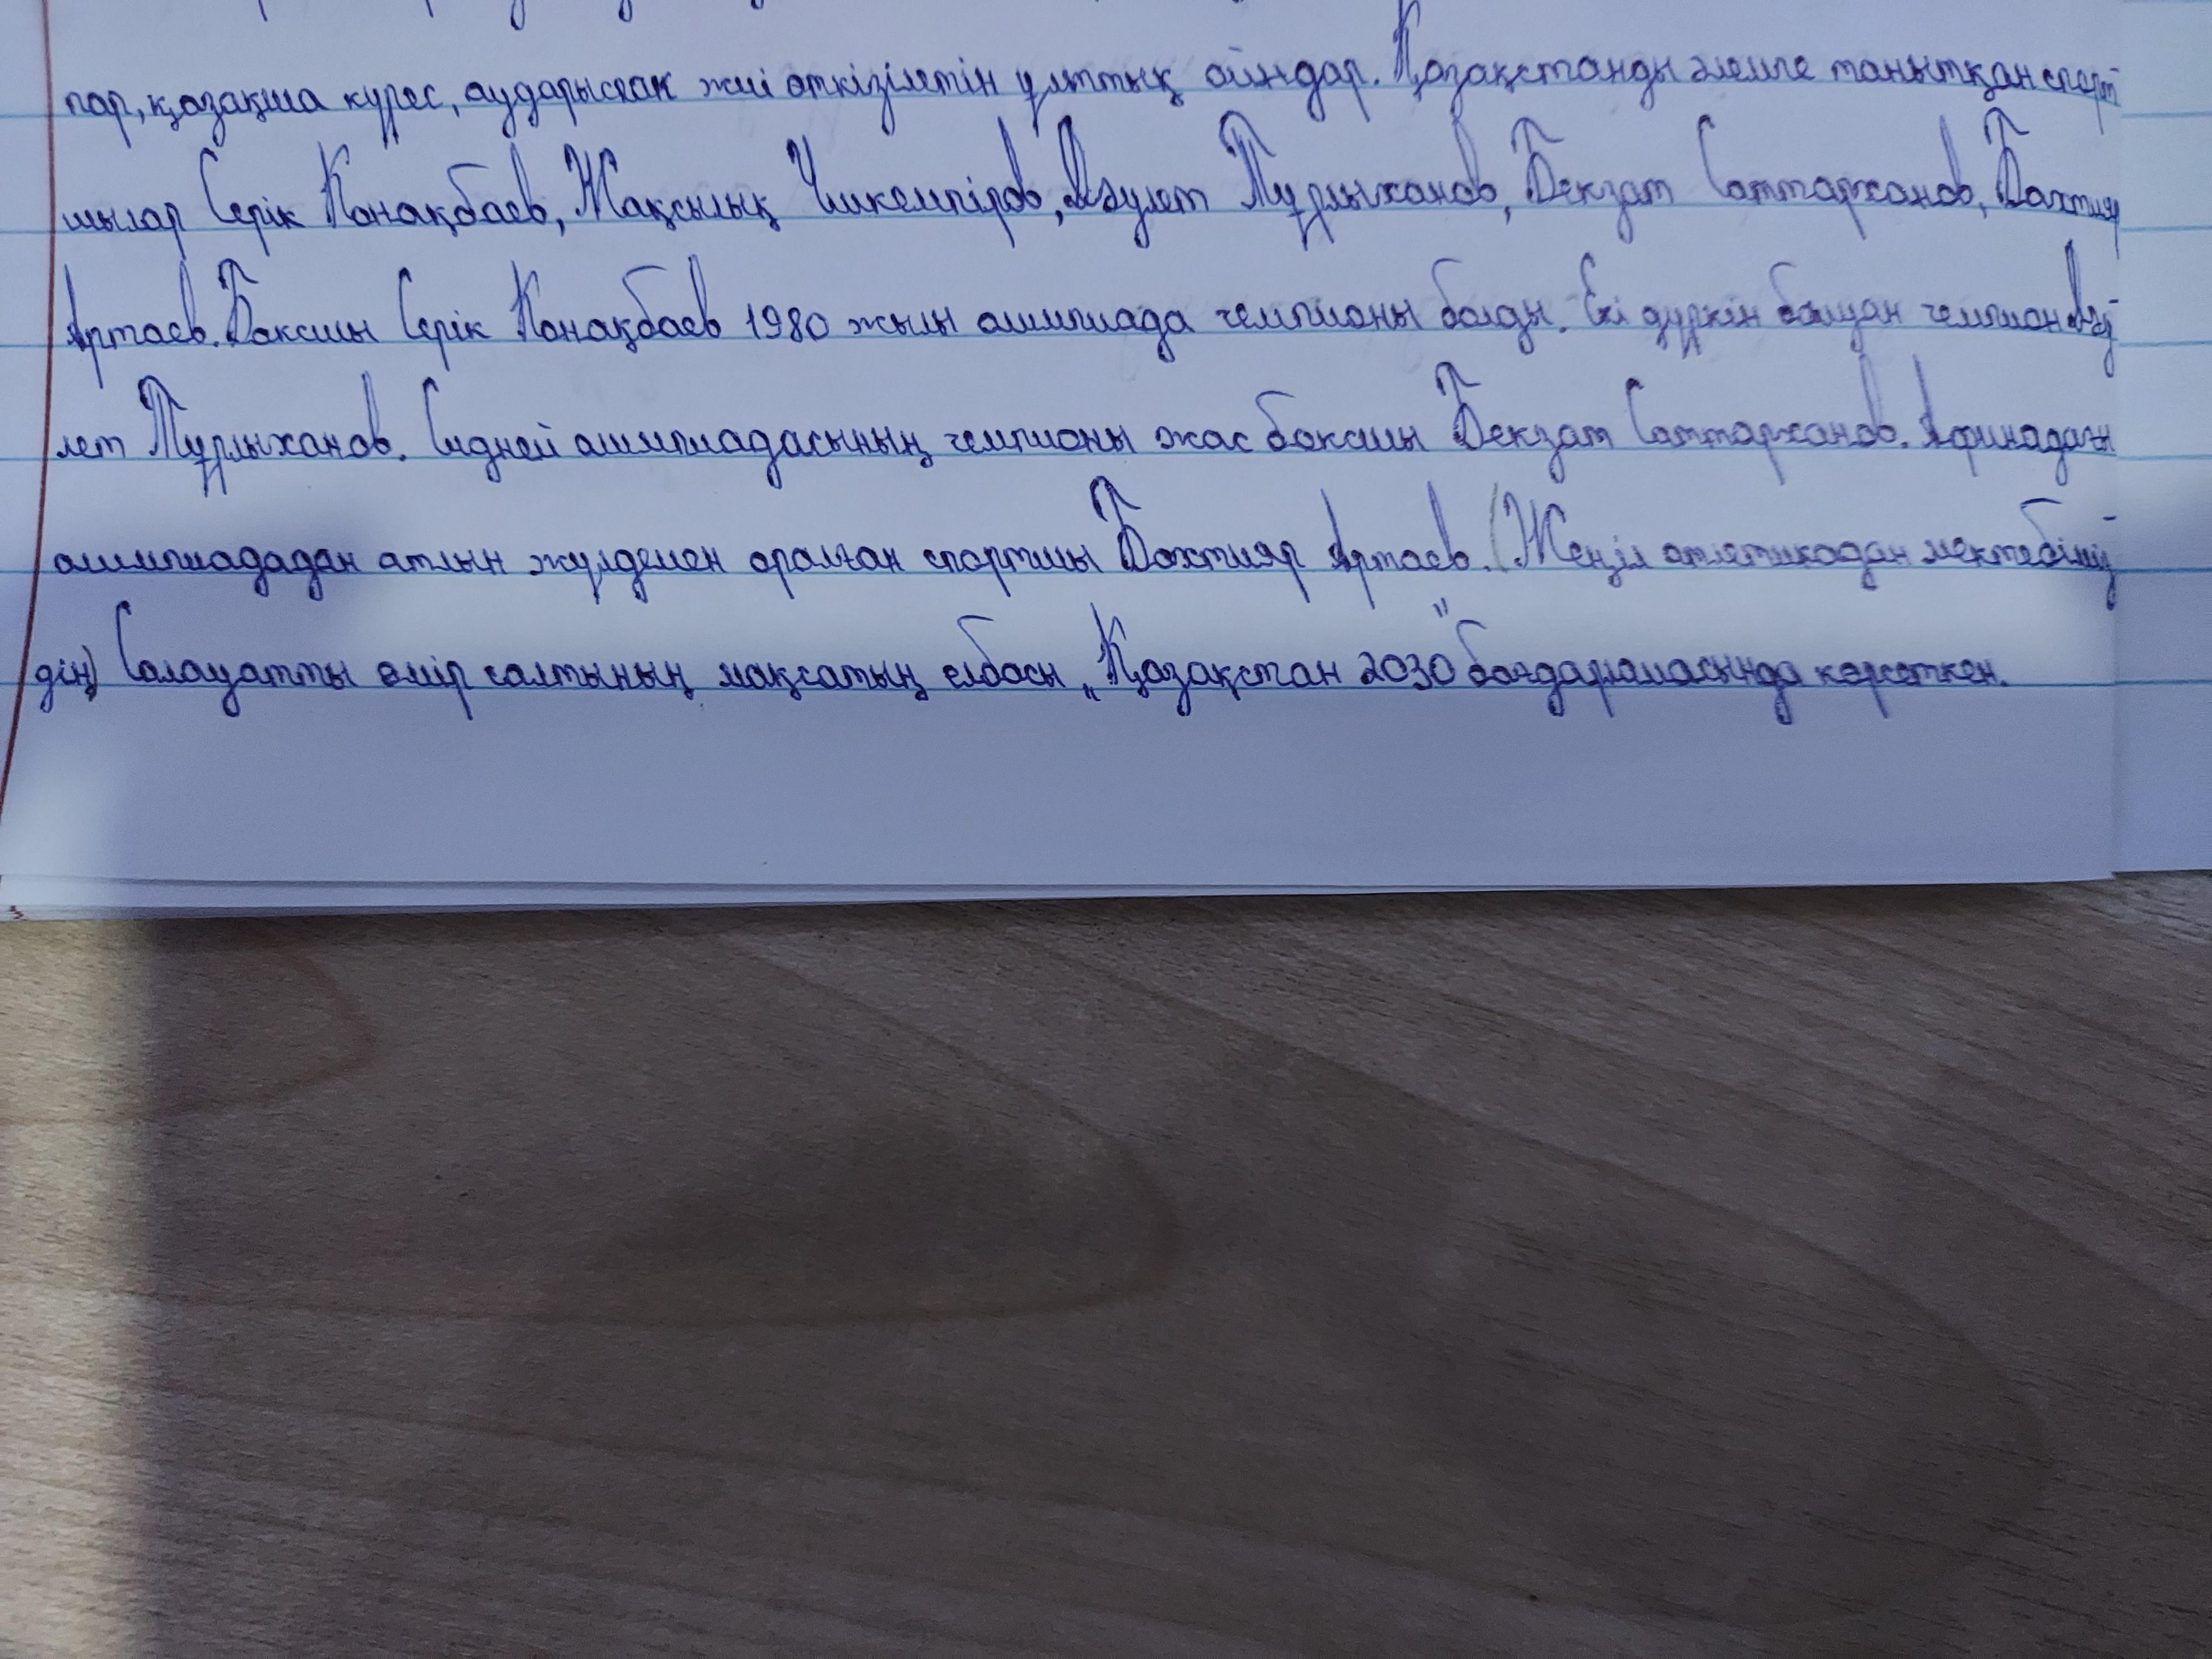 пар, қазақша күрес, аударыспак жиі өткізілетін ұлттық ойндар. Қазақстанды әлемге танытқан спорт-
шылар Серік Конақбаев, Жақсылық Үшкемпіров, Дәулет Тұрлыханов, Бекзат Саттарханов, Бахтияр
Артаев. Боксшы Серік Конақбаев 1980 жылы олимпиада чемпионы болды. Екі дүркін болған чемпион Дәу-
лет Тұрлыханов. Сидней олимпиадасының чемпионы жас боксшы Бекзат Саттарханов. Афинадағы
олимпиададан атлын жүлдемен оралған спортшы Бахтияр Артаев. (Жеңіл атлетикадан мектебіміз-
дің) Салауатты өмір салтының мақсатың елбасы „Қазақстан 2030" бағдарламасында көрсеткен.